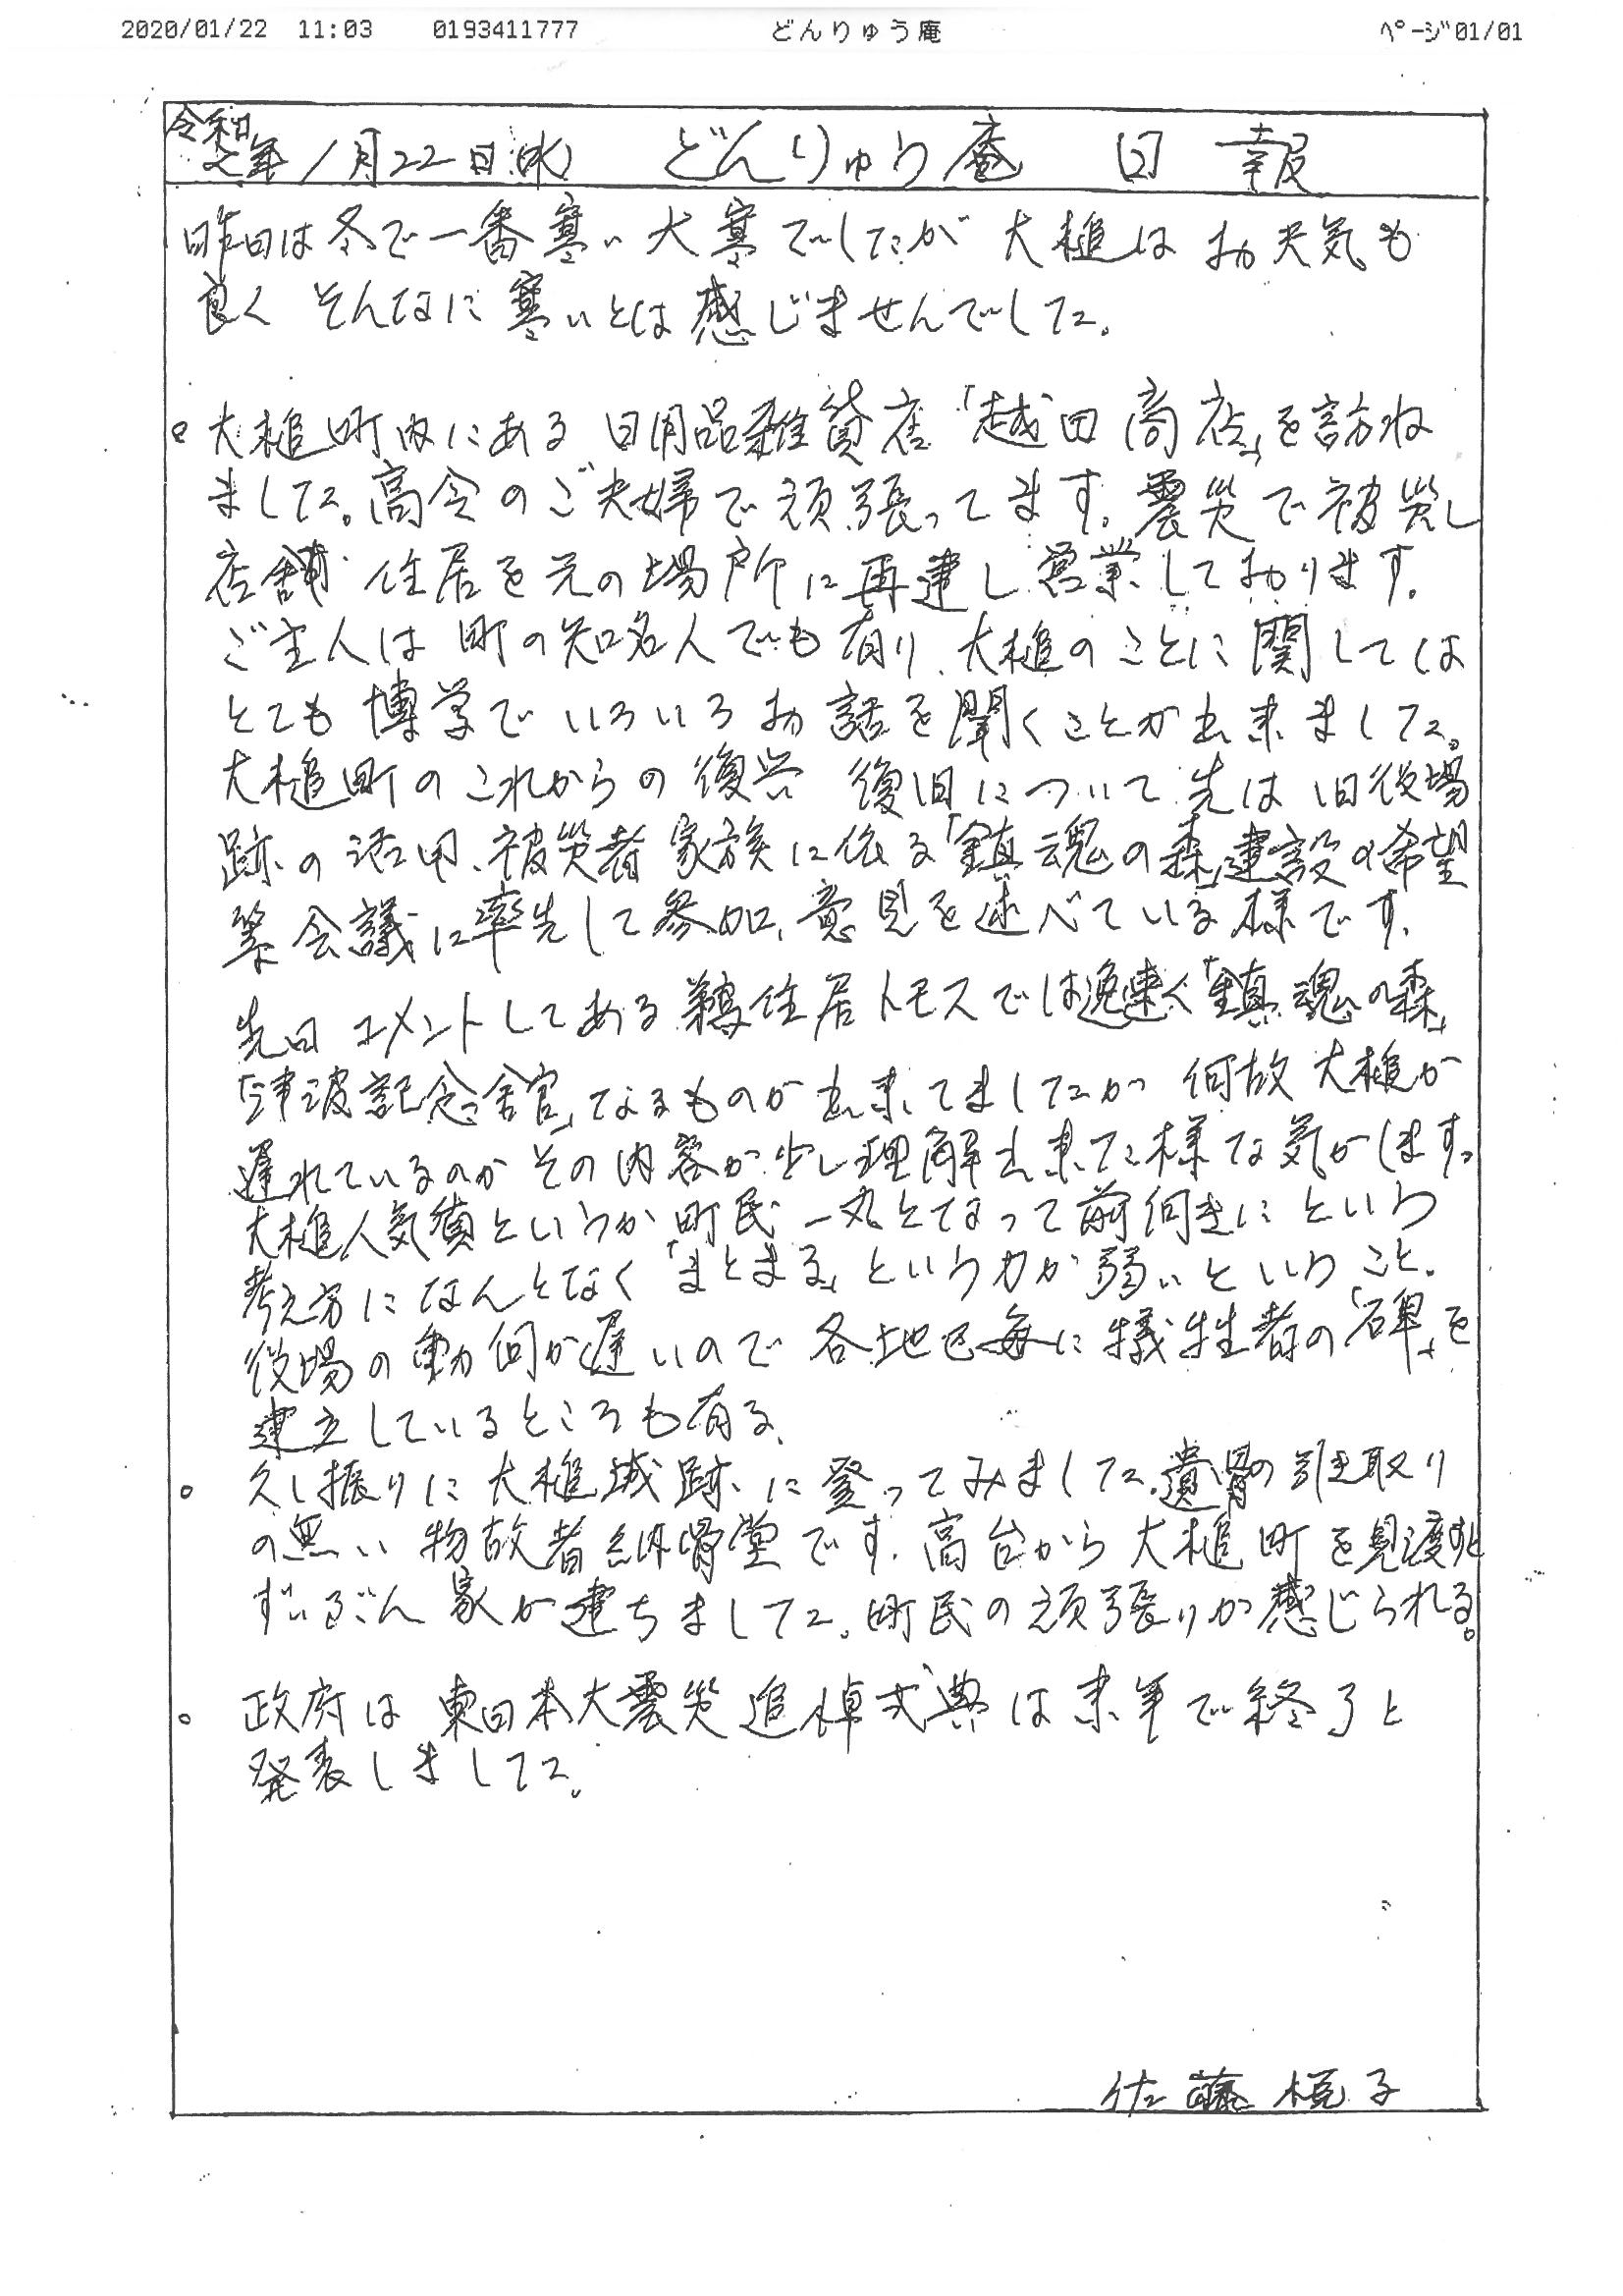 2020/01/22 11:03 0193411777 どんりゅう庵 ページ01/01
令和
2年1月22日(水) どんりゅう庵 日報
昨日は冬で一番寒い大寒でしたが大槌はお天気も
良くそんなに寒いとは感じませんでした。
○大槌町内にある日用品雑貨店「越田商店」を訪ね
ました。高令のご夫婦で頑張ってます。震災で被災し
店舗 住居を元の場所に再建し営業しております。
ご主人は町の知名人でも有り、大槌のことに関しては
とても博学でいろいろお話を聞くことが出来ました。
大槌町のこれからの復興 復旧について先は旧役場
跡の活用、被災者家族に依る「鎮魂の森」建設の希望
等会議に率先して参加、意見を述べている様です。
先日コメントしてある鵜住居トモスでは逸速く「鎮魂の森」
「津波記念舎官」なるものが出来てましたが何故大槌が
遅れているのかその内容が少し理解出来た様な気がします。
大槌人気質というか町民一丸となって前向きにという
考え方になんとなく「まとまる」という力が弱いということ。
役場の動向が遅いので各地区毎に犠牲者の「碑」を
建立しているところも有る、
○久し振りに大槌城跡に登ってみました。遺骨の引き取り
の無い物故者納骨堂です。高台から大槌町を見渡すと
ずいぶん家が建ちました。町民の頑張りが感じられる。
○政府は東日本大震災追悼式典は来年で終了と
発表しました。
佐藤 子